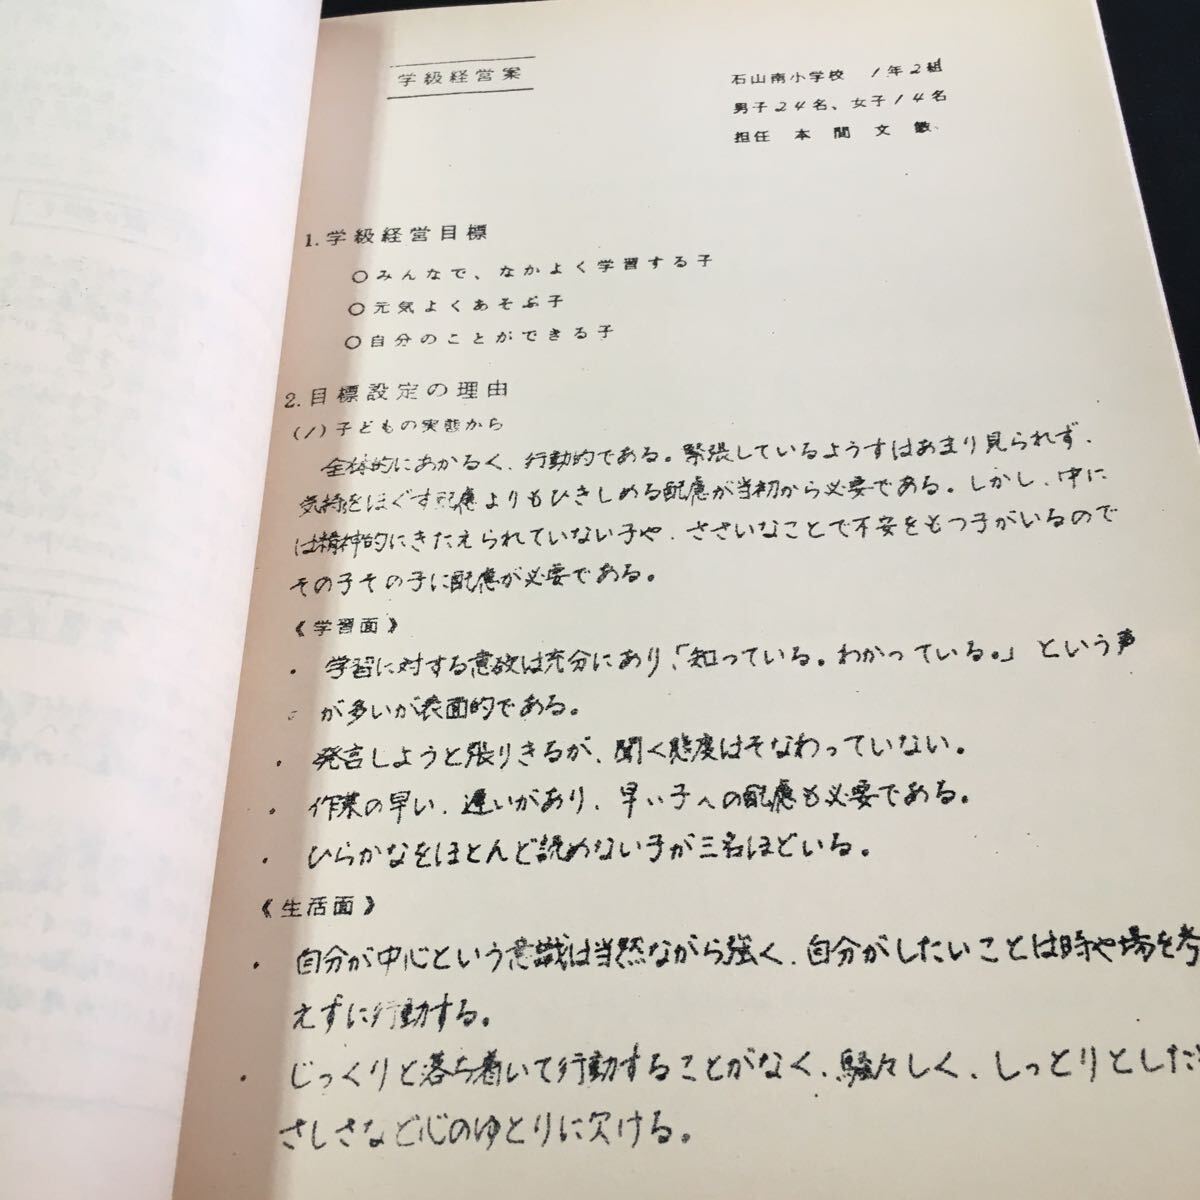 学級経営案
石山南小学校 1年2組
男子24名、女子14名
担任 本間文敏
1.学級経営目標
○みんなで、なかよく学習する子
○元気よくあそぶ子
○自分のことができる子
2.目標設定の理由
(1)子どもの実態から
全体的にあかるく、行動的である。緊張しているようすはあまり見られず、
気持をほぐす配慮よりもひきしめる配慮が当初から必要である。しかし、中に
は精神的にきたえられていない子や、ささいなことで不安をもつ子がいるので
その子その子に配慮が必要である。
《学習面》
・学習に対する意欲は充分にあり、「知っている。わかっている。」という声
が多いが表面的である。
・発言しようと張りきるが、聞く態度はそなわっていない。
・作業の早い、遅いがあり、早い子への配慮も必要である。
・ひらがなをほとんど読めない子が三名ほどいる。
《生活面》
・自分が中心という意識は当然ながら強く、自分がしたいことは時や場を考
えずに行動する。
・じっくりと落ち着いて行動することがなく、騒々しく、しっとりとした
さしさなど心のゆとりに欠ける。